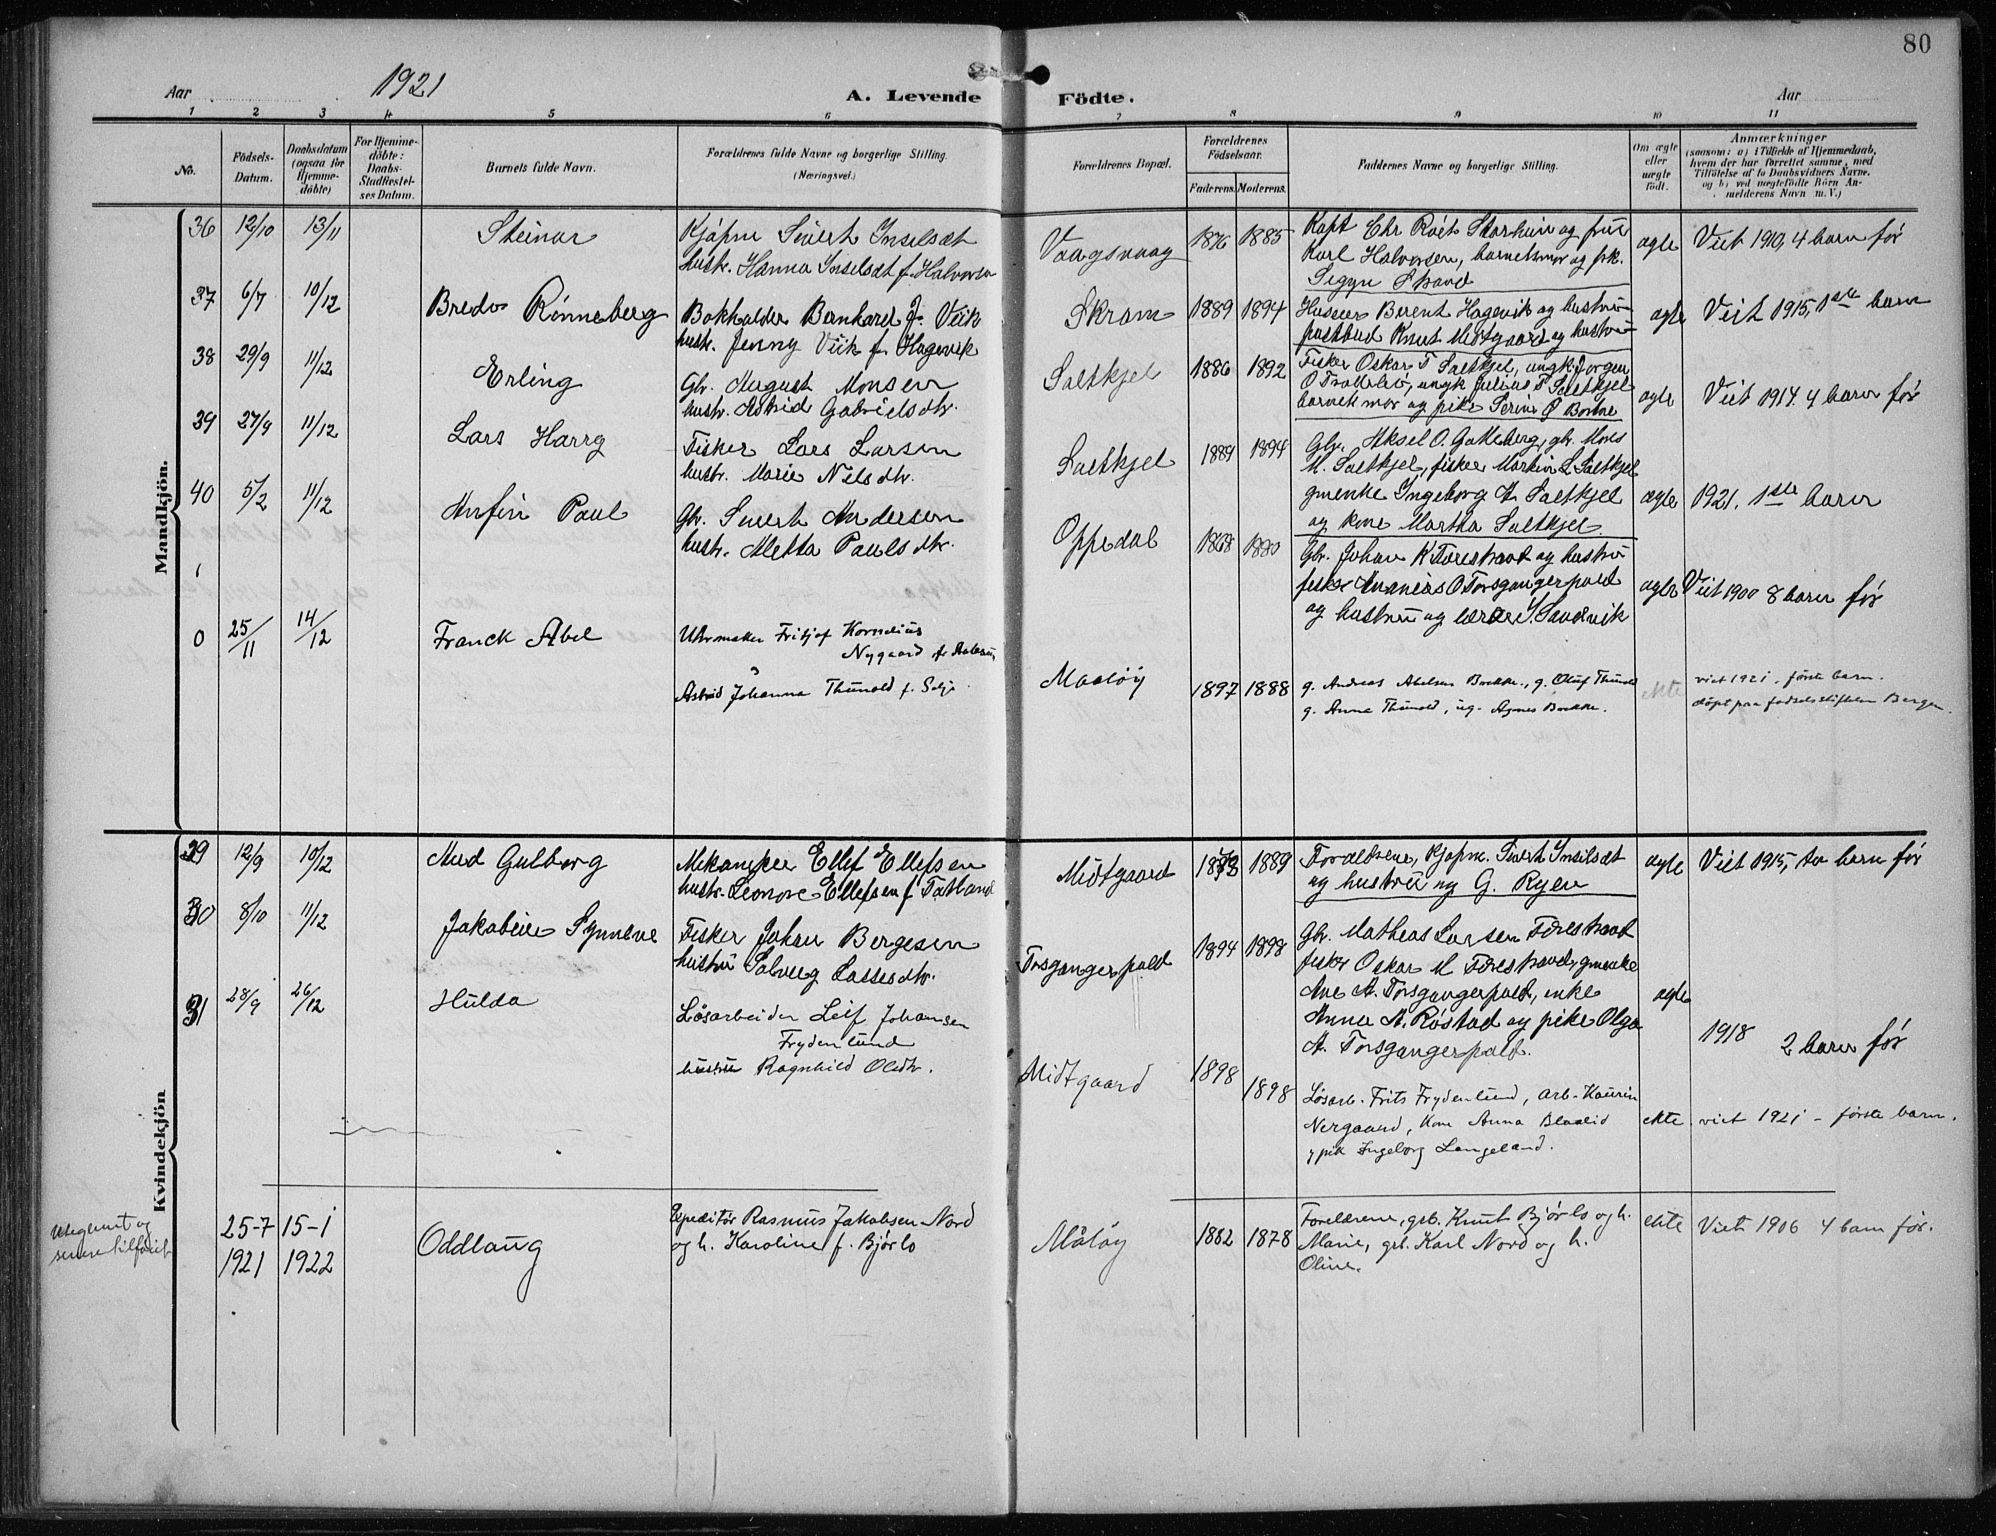 80
Aar 1921
A. Levende Födte.
Aar
1 2 3 4 5 6 7 8 9 10 11
No.
Födsels-Datum.
Daabsdatum (ogsaa for Hjemme-döbte)
For Hjemme-döbte: Daabs-Stadfæstel-ses Datum.
Barnets fulde Navn.
Forældrenes fulde Navne og borgerlige Stilling.
(Næringsvei.)
Forældrenes Bopæl.
Forældrenes Födselsaar.
Faderens. Moderens.
Faddernes Navne og borgerlige Stilling.
Om ægte eller uægte födt.
Anmærkninger
(saasom: a) i Tilfælde af Hjemmedaab,
hvem der har forrettet samme, med
Tilföielse af to Daabsvidners Navne.
og b) ved uægtefödte Börn An-
melderens Navn m. V.)
Mandkjön.
36 12/10 13/11 Steinar
Kjøpm Sivert Insilsæt
hustr. Hanna Insilsæt f. Halvorsen
Vaagsvaag 1876 1885
Kapt Chr. Storheim og frue
Karl Halvorsen, barnets mor og frk.
Sigyn Strand
ægte Viet 1910, 4 barn før
37 6/7 10/12 Bredo Rønneberg
Bokholder Bernhard J. Viik
hustr. Jenny Viik f. Hagevik
Skram 1889 1894
Huseier Berent Hagevik og hustru
postbud Knut Midtgaard og hustru
ægte Viet 1915, 1ste barn
38 29/9 11/12 Erling
Gbr. August Monsen
hustr. Astrid Gabrielsdtr.
Saltkjel 1886 1892
Fisker Oskar T Saltkjel, ungk Jørgen
O Trollebø, ungk Julius T Saltkjel
barnets mor og pike Serine O Bortne
ægte Viet 1914. 4 barn før
39 27/9 11/12 Lars Harry
Fisker Lars Larsen
hustr. Marie Nilsdtr.
Saltkjel 1889 1894
Gbr. Aksel O. Gotteberg, gbr. Mons
M. Saltkjel, fisker Martin L Saltkjel
gmenke Ingeborg A Saltkjel
og kone Martha Saltkjel.
ægte 1921. 1ste barn
40 5/2 11/12 Anfin Paul
Gbr. Sivert Andersen
hustr. Aletta Paulsdtr.
Oppedal 1868 1880
Gbr. Johan K Færestrand og hustru
fisker Ananias O Torsgangerpold
og hustru og lærer S. Sandvik
ægte Viet 1900 8 barn før
0 25/11 14/12 Franck Abel
Uhrmaker Fritjof Kornelius
Nygaard fr Aalesund
Astrid Johanna Thunold f. Selje
Maaløy 1897 1888
g. Andreas Abelsen Brekke, g. Oluf Thunold
g. Anna Thunold, ug. Agnes Brekke.
ekte viet 1921. første barn.
døpt paa fødselsstiftelsen Bergen.
Kvindekjön
29 12/9 10/12 Aud Gulborg
Mekaniker Ellef Ellefsen
hustr. Leonore Ellefsen f Tatland
Midtgaard 1873 1889
Forældrene, Kjøpm. Sivert Insilsæt
og hustru og G. Ryen
ægte Viet 1915, to barn før
30 8/10 11/12 Jakobine Synneve
Fisker Johan Bergesen
hustru Solveig Lassesdtr.
Torsgangerpold 1894 1898
Gbr. Mathias Larsen Færestrand
fisker Oskar M Færestrand, gmenke
Ane A. Torsgangerpold, enke
Anna A. Røstad og pike Olga
A. Torsgangerpold.
ægte 1918 2 barn før
31 28/9 26/12 Hulda
Løsarbeider Leif Johansen
Frydenlund
hustru Ragnhild Olsdtr.
Midtgaard 1898 1898
Løsarb. Frits Frydenlund, arb. Kaurin
Nergaard, kone Anna Blaalid
og pik Ingeborg Langeland.
ekte viet 1921 - første barn.
Uteglemt og
senere tilføiet
25-7 15-1
1921 1922
Oddlaug
Expeditør Rasmus Jakobsen Nord
og h. Karoline f. Bjørlo
Måløy 1882 1878
Forældrene, gbr. Knut Bjørlo og h.
Marie, gbr. Karl Nord og h.
Oline.
ekte Viet 1906 4 barn før.